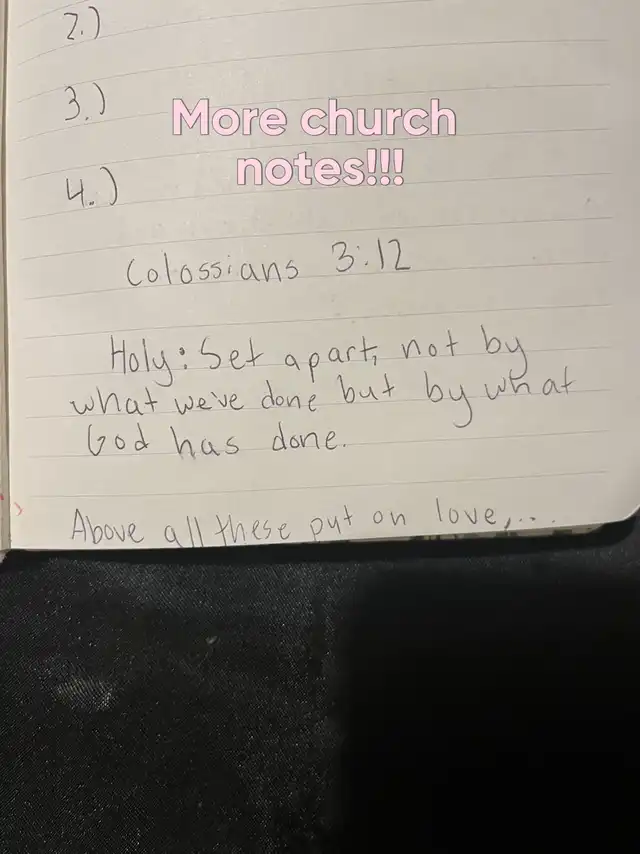 2.)
3.)
More church
notes!!!
4.)
Colossians 3:12
Holy: Set apart, not by
what we've done but by what
God has done.
Above all these put on love,...